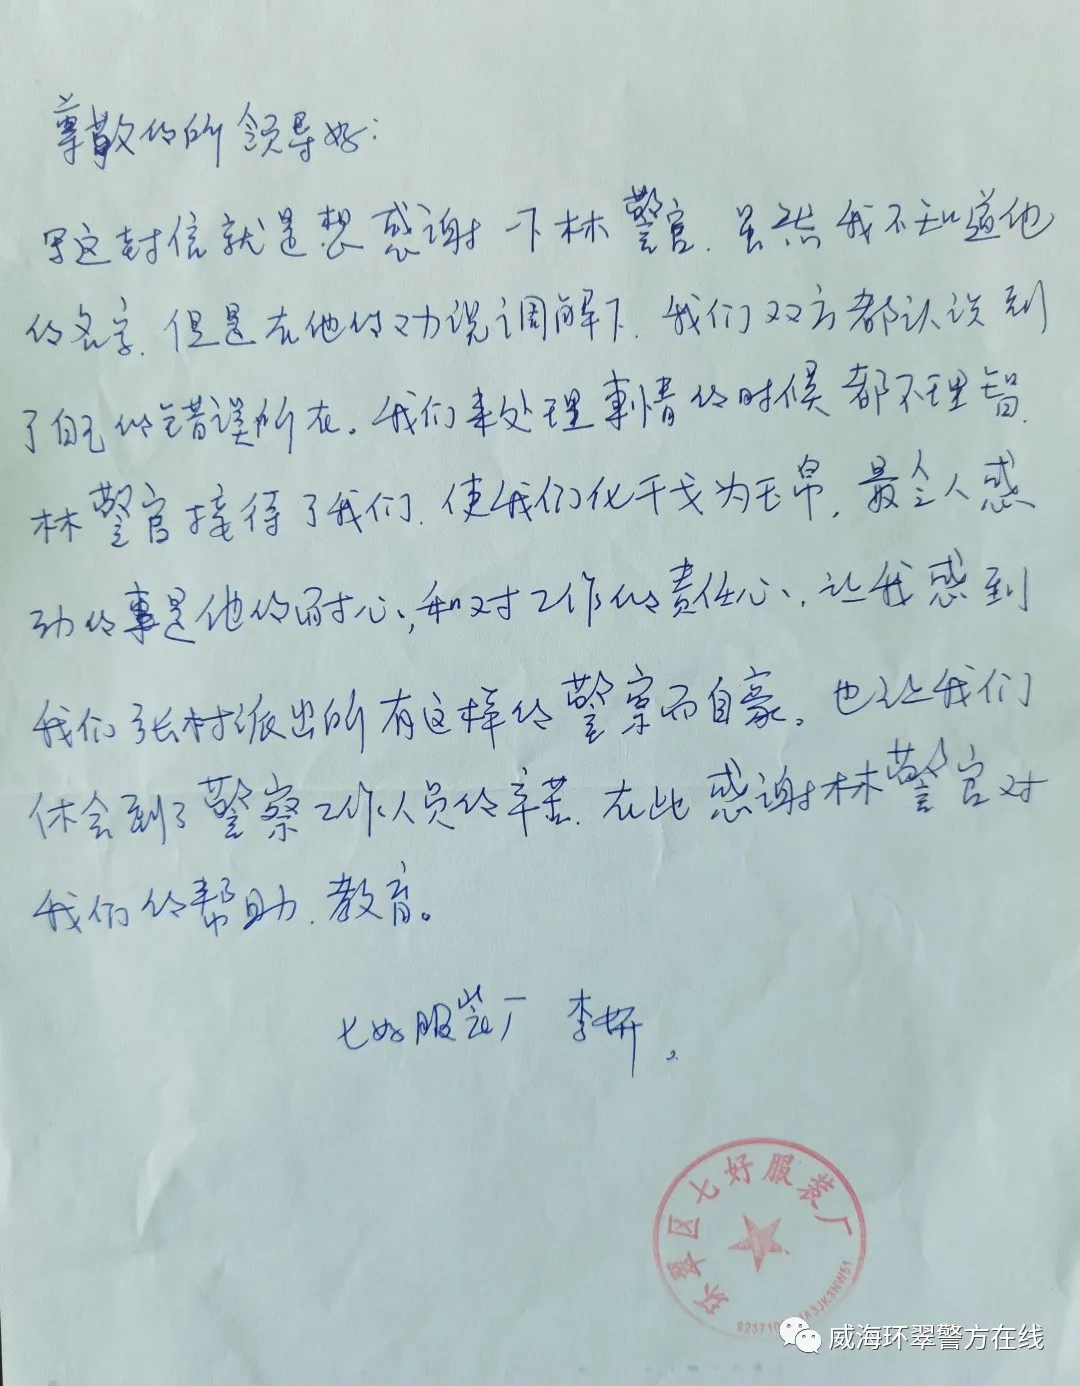 尊敬的所领导好:
写这封信就是想感谢一下林警官.虽然我不知道他
的名字.但是在他的劝说调解下.我们双方都认识到
了自己的错误所在。我们来处理事情的时候都不理智.
林警官接待了我们.使我们化干戈为玉帛.最令人感
动的事是他的耐心,和对工作的责任心、让我感到
我们张村派出所有这样的警察而自豪。也让我们
体会到了警察工作人员的辛苦.在此感谢林警官对
我们的帮助.教育。
七好服装厂 李妍。
环翠区七好服装厂
威海环翠警方在线